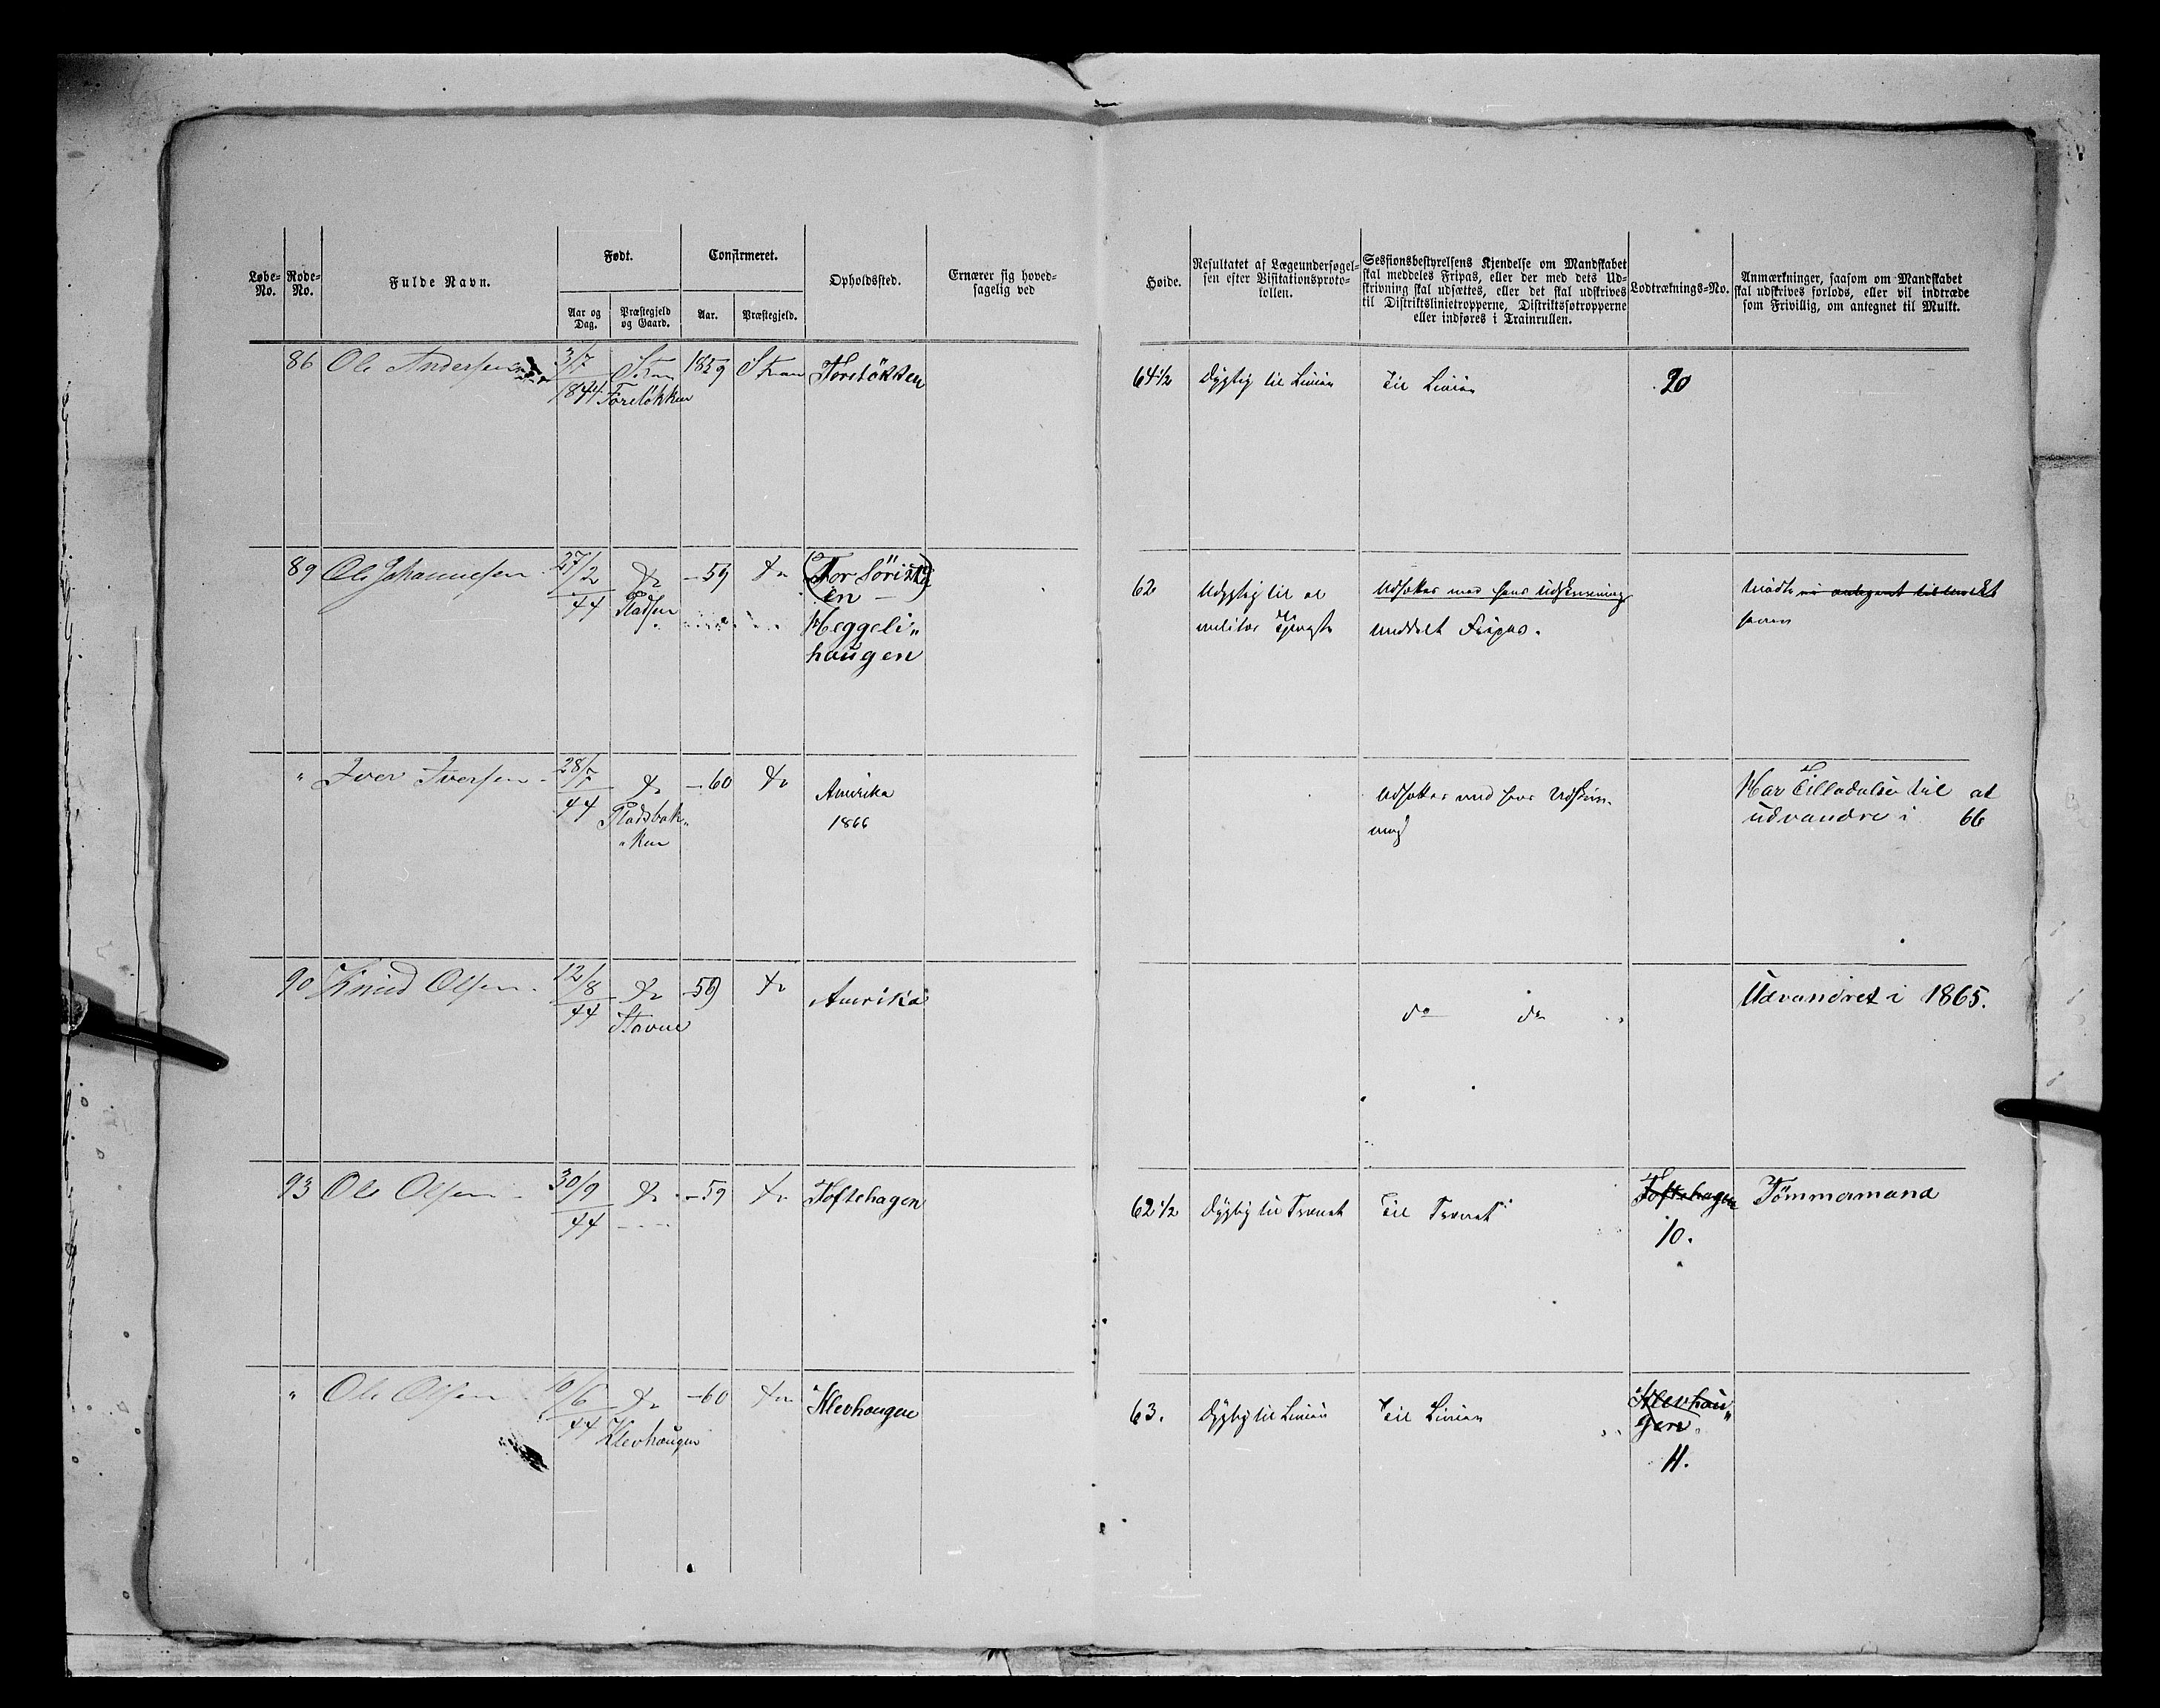 Løbe-No.
Rode-No.
Fulde Navn.
Født.
Aar og Dag.
Præstegjeld og Gaard.
Confirmeret.
Aar.
Præstegjeld.
Opholdssted.
Ernærer sig hoved-
sagelig ved
Høide.
Resultatet af Lægeundersøgel-
sen efter Visitationsproto-
kollen.
Sessionsbestyrelsens Kjendelse om Mandskabet
skal meddeles Fripas, eller der med dets Ud-
skrivning skal udsættes, eller det skal udskrives
til Distriktslinietropperne, Distriktsfotropperne
eller indføres i Trainrullen.
Lodtræknings-No.
Anmærkninger, saasom om Mandskabet
skal udskrives forlods, eller vil indtræde
som Frivillig, om antegnet til Mulkt.
86 Ole Andersen 3/7 1859
1844 Foreløkken
Foreløkken
64 1/2 Dygtig til Linien Til Linien 20
89 Ole Johannesen 27/2 do -59 do
44 Pladsen
en
Heggeli„
haugen
62 Udygtig til al Udsættes med hans Udskrivning Mødte
militær Tjeneste meddelt Fripas.
" Iver Iversen 28/7 do -60 do Amerika
44 Pladsbak„ 1866
„ken
Udsættes med hans Udskriv-
ning
Har Tilladelse til at
udvandre i 66
90 Knud Olsen 12/8 do 59 do Amerika
44 Stavne
do do
Udvandret i 1865.
93 Ole Olsen 30/9 do -59 do Toftehagen
44
62 1/2 Dygtig til Trænet Til Trænet Toftehagen Tømmermand
10.
" Ole Olsen 10/6 do -60 do Klevhaugen
44 Klevhaugen
63. Dygtig til Linien Til Linien Klevhau„
gen
11.